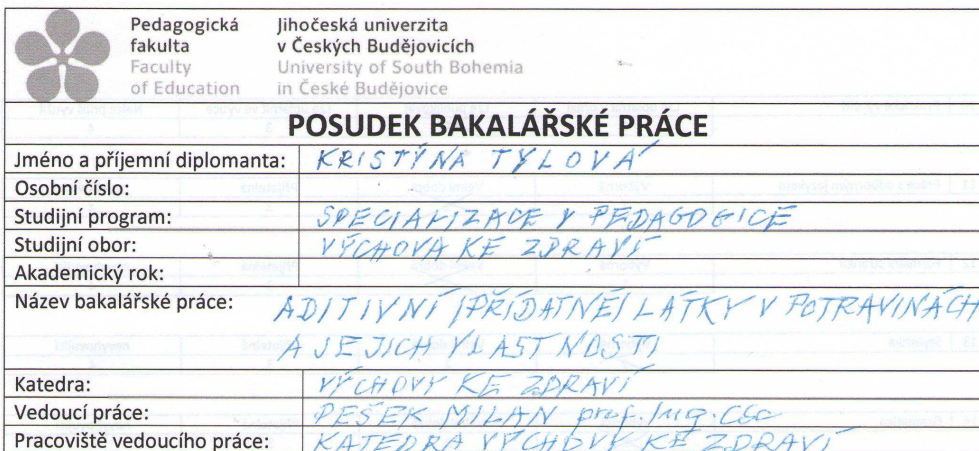 Pedagogická Jihočeská univerzita
fakulta v Českých Budějovicích
Faculty University of South Bohemia
of Education in České Budějovice
POSUDEK BAKALÁŘSKÉ PRÁCE
Jméno a příjemní diplomanta: KRISTÝNA TYLOVÁ
Osobní číslo:
Studijní program: SPECIALIZACE V PEDAGOGICE
Studijní obor: VÝCHOVA KE ZDRAVÍ
Akademický rok:
Název bakalářské práce: ADITIVNÍ /PŘÍDATNÉ/ LÁTKY V POTRAVINÁCH
A JEJICH VLASTNOSTI
Katedra: VÝCHOVY KE ZDRAVÍ
Vedoucí práce: PEŠEK MILAN prof. Ing. CSc
Pracoviště vedoucího práce: KATEDRA VÝCHOVY KE ZDRAVÍ